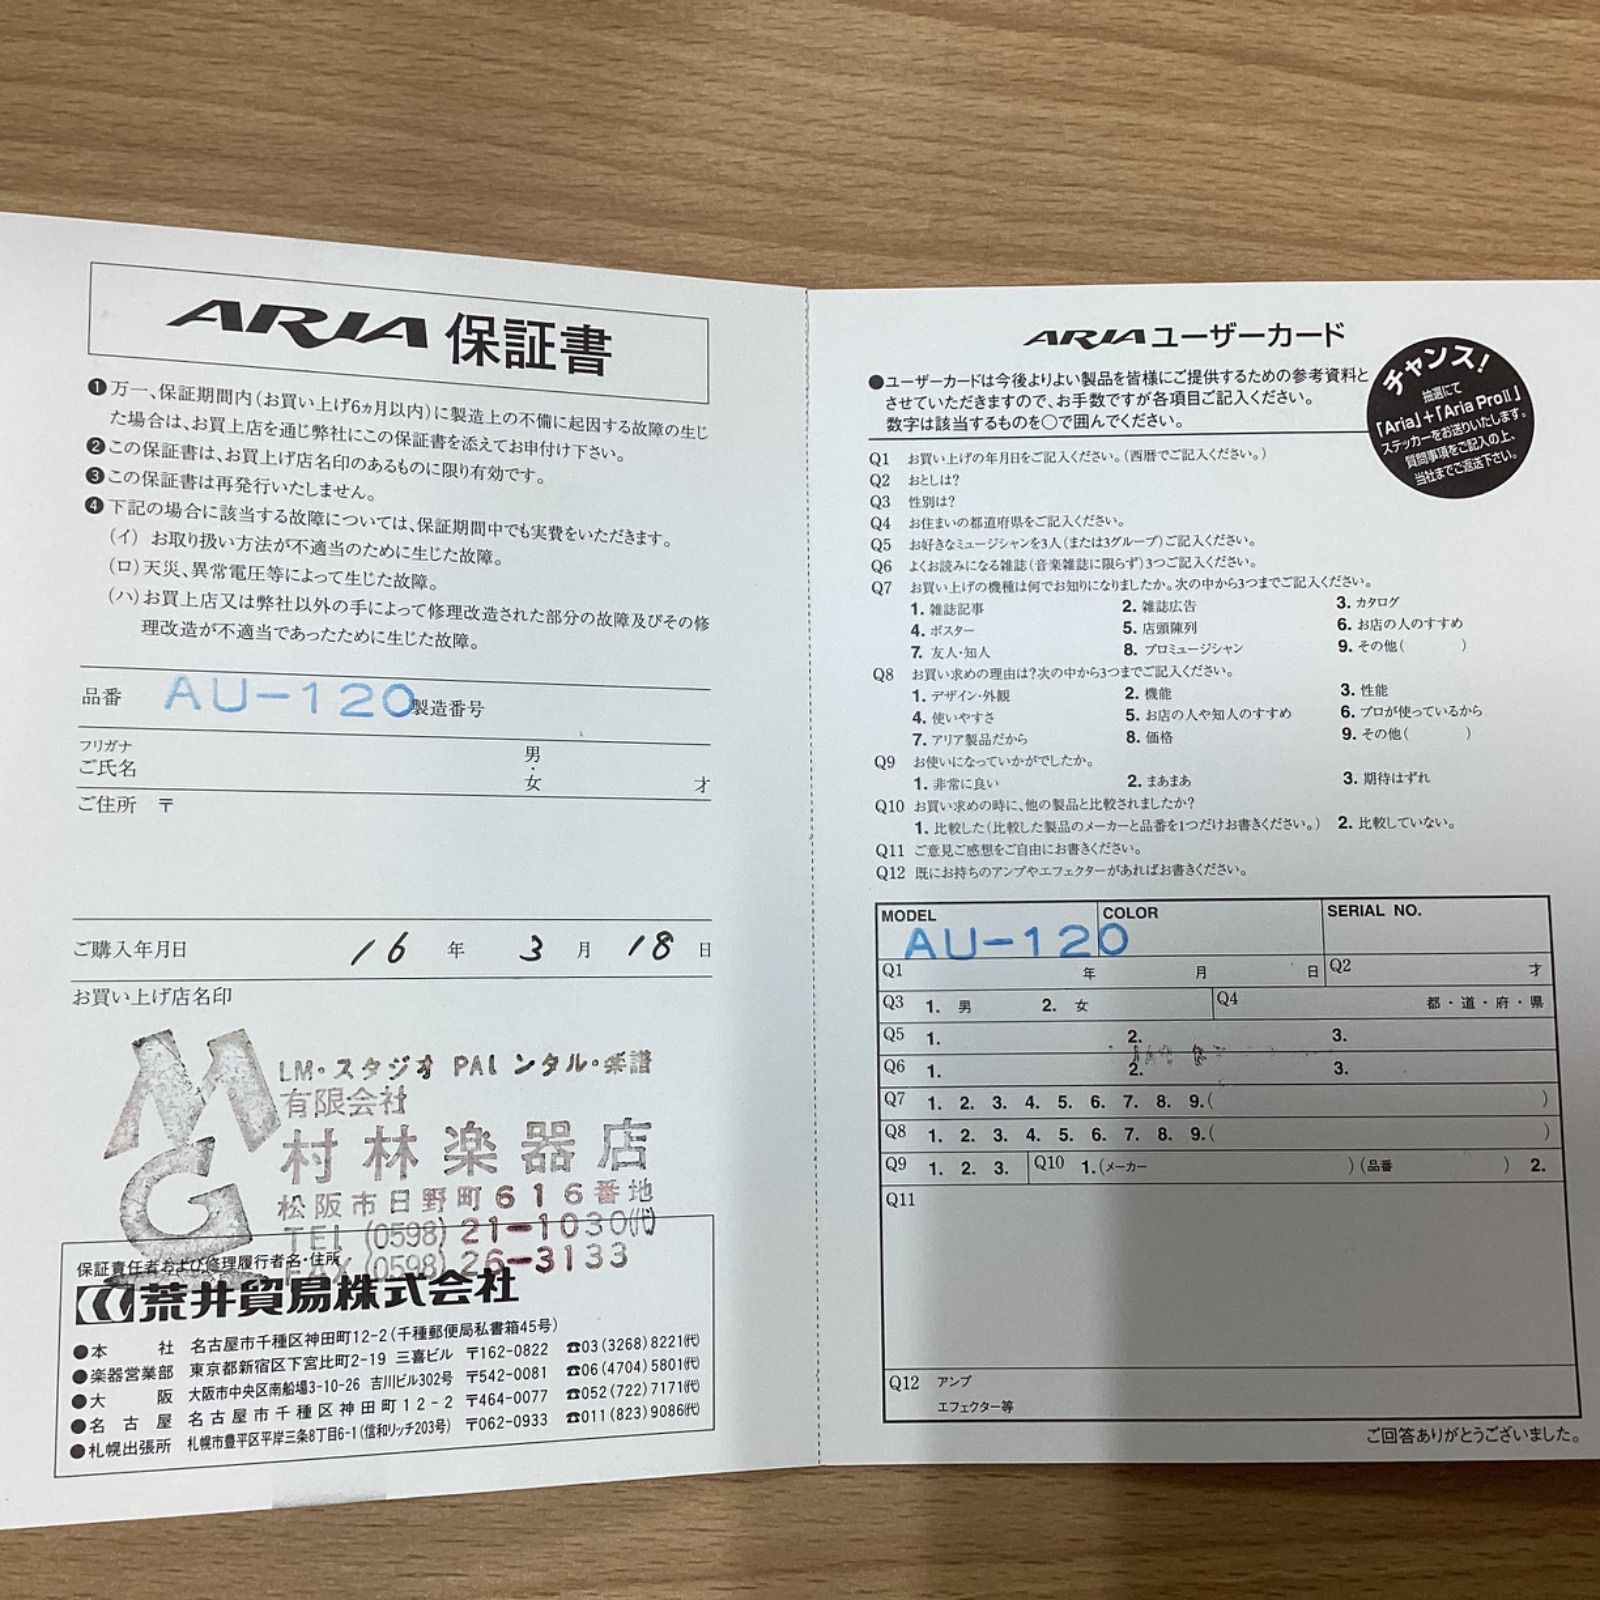 ARIA 保証書
❶万一、保証期間内(お買い上げ6ヵ月以内)に製造上の不備に起因する故障の生じ
た場合は、お買上店を通じ弊社にこの保証書を添えてお申付け下さい。
❷この保証書は、お買上げ店名印のあるものに限り有効です。
❸この保証書は再発行いたしません。
❹下記の場合に該当する故障については、保証期間中でも実費をいただきます。
(イ) お取り扱い方法が不適当のために生じた故障。
(ロ)天災、異常電圧等によって生じた故障。
(ハ)お買上店又は弊社以外の手によって修理改造された部分の故障及びその修
理改造が不適当であったために生じた故障。
品番 AU-120 製造番号
フリガナ
ご氏名 男・女 才
ご住所 〒
ご購入年月日 16 年 3 月 18 日
お買い上げ店名印
MG
LM・スタジオ PAレンタル・楽譜
有限会社
村林楽器店
松阪市日野町616番地
TEL (0598) 21-1030(代)
FAX (0598) 26-3133
保証責任者および修理履行者名・住所
荒井貿易株式会社
●本社 名古屋市千種区神田町12-2(千種郵便局私書箱45号)
●楽器営業部 東京都新宿区下宮比町2-19 三喜ビル 〒162-0822 ☎03(3268)8221(代)
●大阪 大阪市中央区南船場3-10-26 吉川ビル302号 〒542-0081 ☎06(4704)5801(代)
●名古屋 名古屋市千種区神田町12-2 〒464-0077 ☎052(722)7171(代)
●札幌出張所 札幌市豊平区平岸三条8丁目6-1(信和リッチ203号) 〒062-0933 ☎011(823)9086(代)
ARIAユーザーカード
●ユーザーカードは今後よりよい製品を皆様にご提供するための参考資料と
させていただきますので、お手数ですが各項目ご記入ください。
数字は該当するものを○で囲んでください。
チャンス!
抽選にて
「Aria」+「Aria ProⅡ」
ステッカーをお送りいたします。
質問事項をご記入の上、
当社までご返送下さい。
Q1 お買い上げの年月日をご記入ください。(西暦でご記入ください。)
Q2 おとしは?
Q3 性別は?
Q4 お住まいの都道府県をご記入ください。
Q5 お好きなミュージシャンを3人(または3グループ)ご記入ください。
Q6 よくお読みになる雑誌(音楽雑誌に限らず)3つご記入ください。
Q7 お買い上げの機種は何でお知りになりましたか。次の中から3つまでご記入ください。
1. 雑誌記事 2. 雑誌広告 3. カタログ
4. ポスター 5. 店頭陳列 6. お店の人のすすめ
7. 友人・知人 8. プロミュージシャン 9. その他( )
Q8 お買い求めの理由は?次の中から3つまでご記入ください。
1. デザイン・外観 2. 機能 3. 性能
4. 使いやすさ 5. お店の人や知人のすすめ 6. プロが使っているから
7. アリア製品だから 8. 価格 9. その他( )
Q9 お使いになっていかがでしたか。
1. 非常に良い 2. まあまあ 3. 期待はずれ
Q10 お買い求めの時に、他の製品と比較されましたか?
1. 比較した(比較した製品のメーカーと品番を1つだけお書きください。) 2. 比較していない。
Q11 ご意見ご感想をご自由にお書きください。
Q12 既にお持ちのアンプやエフェクターがあればお書きください。
MODEL COLOR SERIAL NO.
AU-120
Q1 年 月 日 Q2 才
Q3 1. 男 2. 女 Q4 都・道・府・県
Q5 1. 2. 3.
Q6 1. 2. 3.
Q7 1. 2. 3. 4. 5. 6. 7. 8. 9.( )
Q8 1. 2. 3. 4. 5. 6. 7. 8. 9.( )
Q9 1. 2. 3. Q10 1.(メーカー )(品番 ) 2.
Q11
Q12 アンプ
エフェクター等
ご回答ありがとうございました。